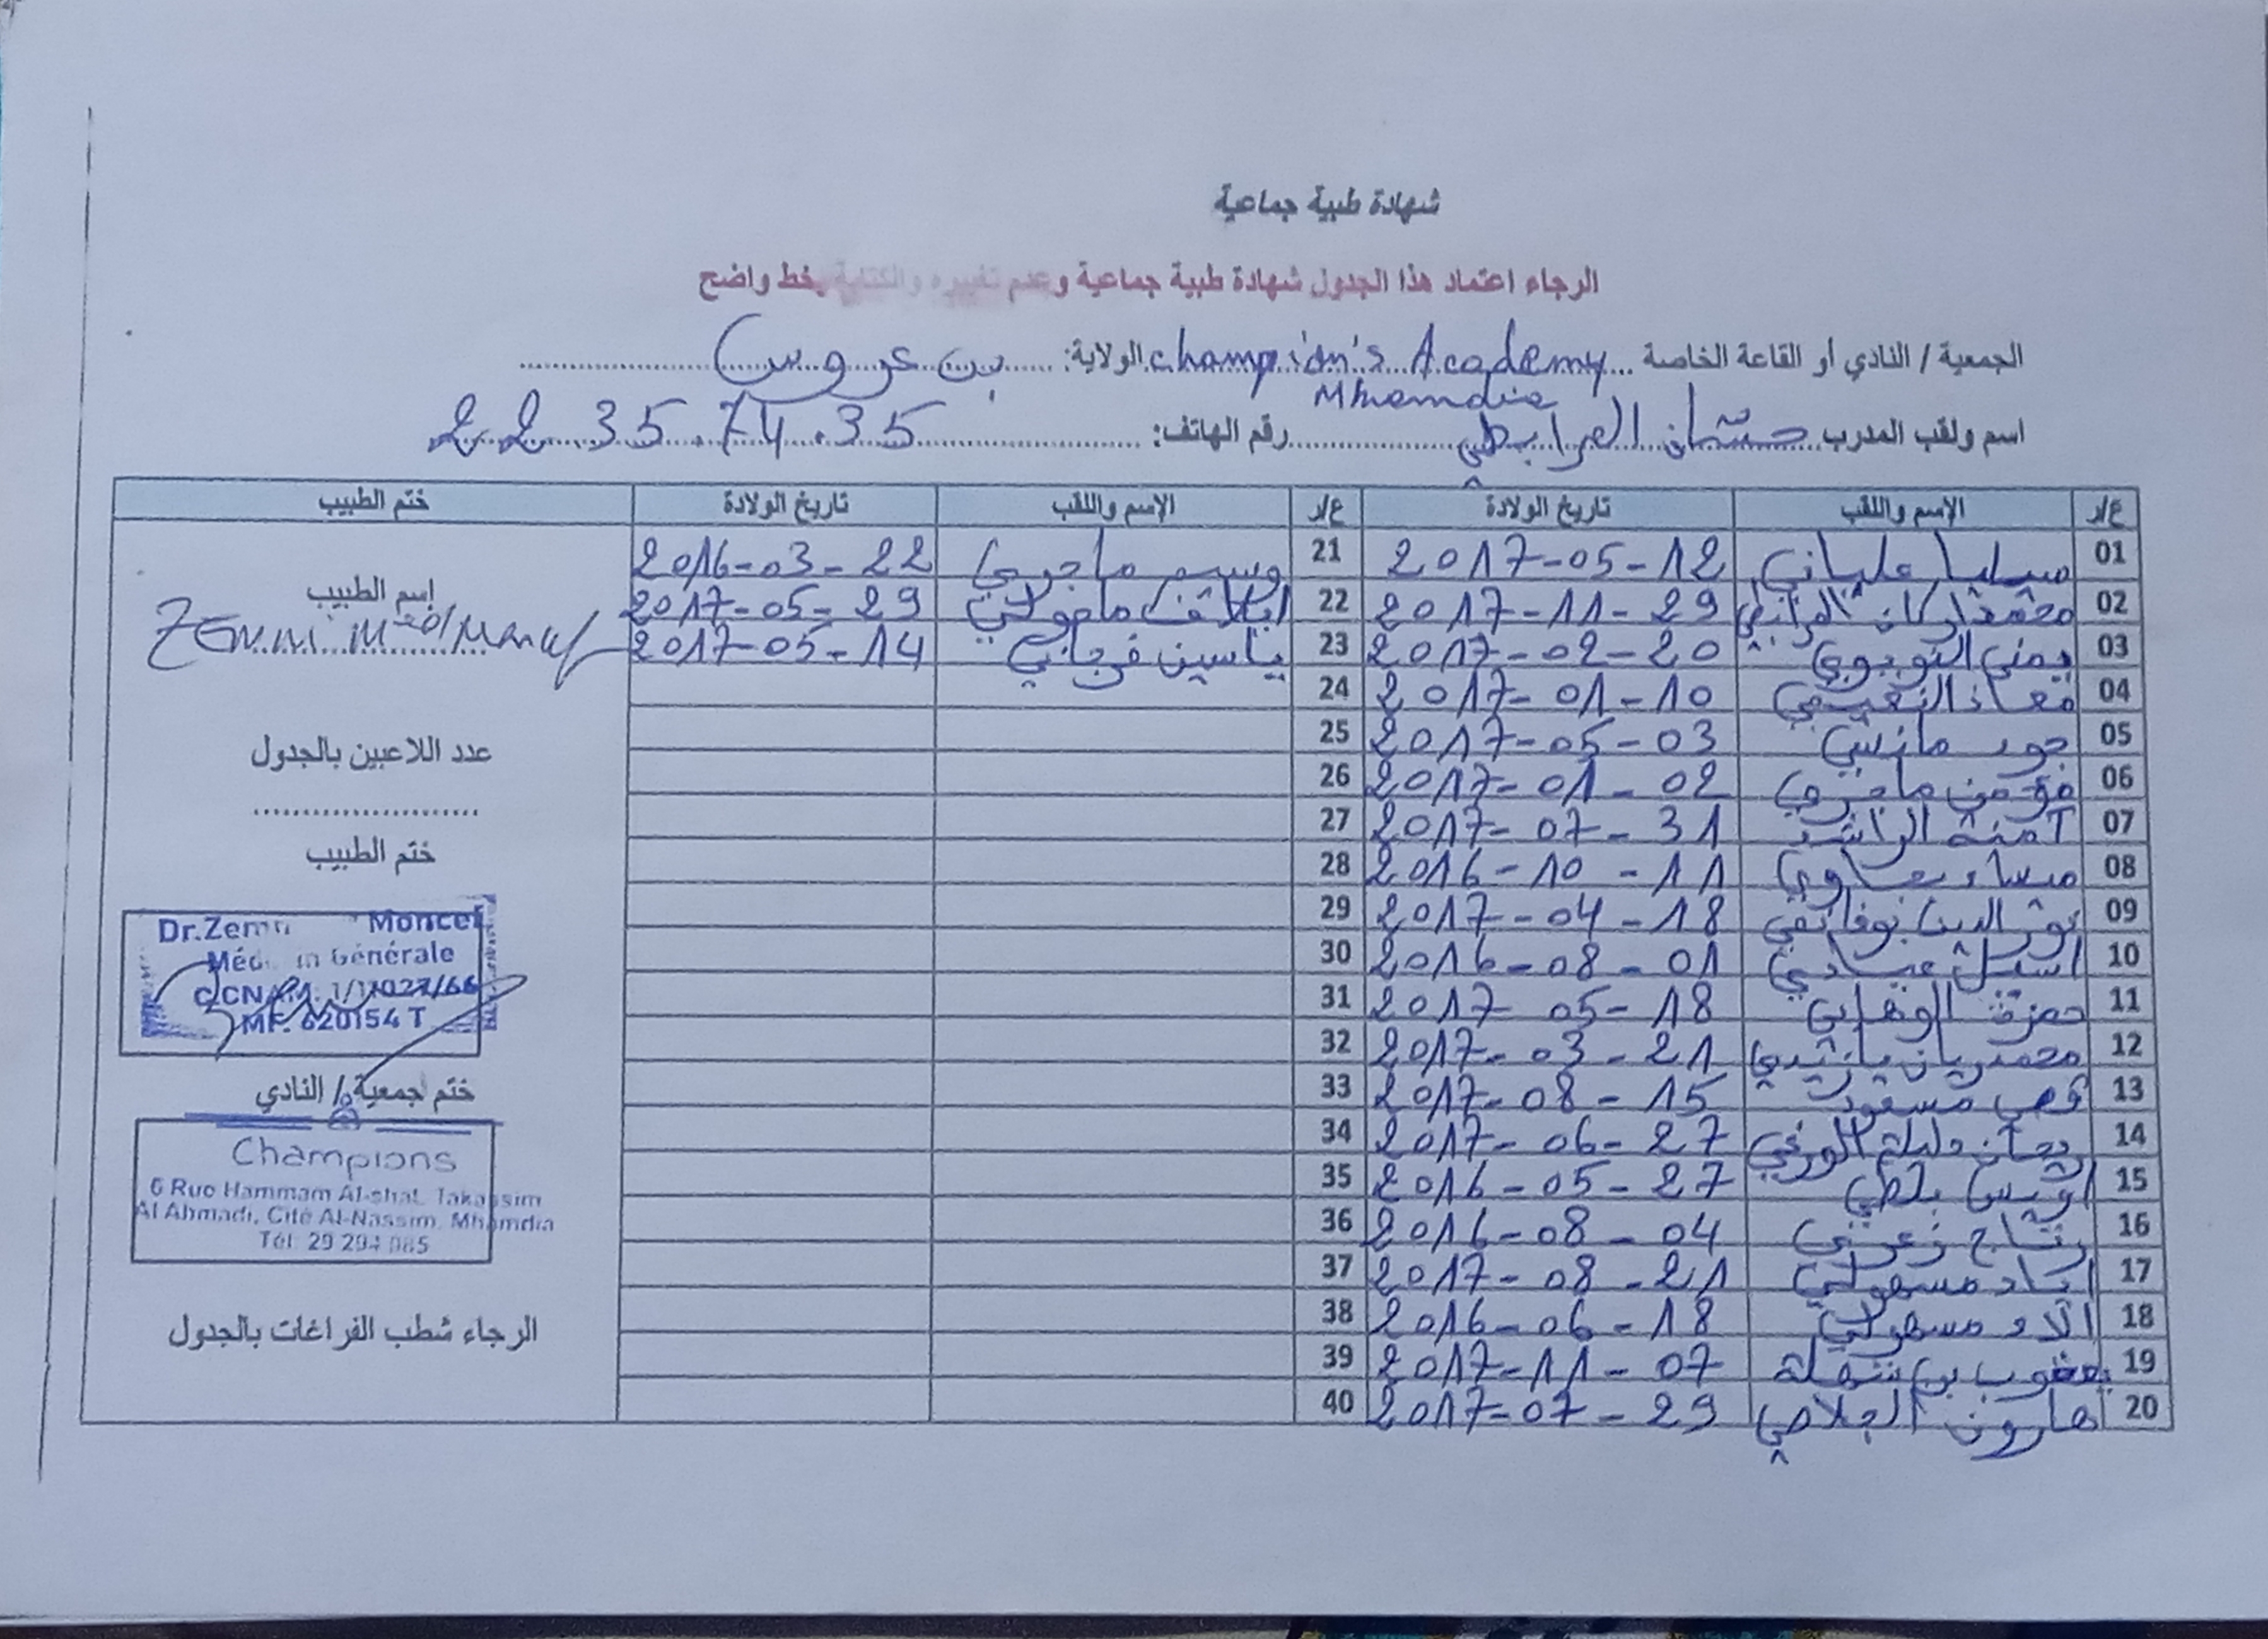 شهادة طبية جماعية
الرجاء اعتماد هذا الجدول شهادة طبية جماعية وعدم تغييره والكتابة بخط واضح
الجمعية / النادي أو القاعة الخاصة ... champion's Academy الولاية: بن عروس
Mhamdia
اسم ولقب المدرب العرابطي رقم الهاتف: 22.35.74.35
ع/ر الإسم واللقب تاريخ الولادة ع/ر الإسم واللقب تاريخ الولادة ختم الطبيب
01 علياني 2017-05-12 21 وسيم ماجري 2016-03-22
02 2017-11-29 22 2017-05-29
03 يمنى 2017-02-20 23 ياسين فرجاني 2017-05-14
04 معاذ النعيمي 2017-01-10 24
05 جود 2017-05-03 25
06 مؤمن ماجري 2017-01-02 26
07 آمنة الراشد 2017-07-31 27
08 2016-10-11 28
09 نور الدين 2017-04-18 29
10 أسيل عبادي 2016-08-01 30
11 حمزة الوهابي 2017-05-18 31
12 2017-03-21 32
13 قصي مسعود 2017-08-15 33
14 2017-06-27 34
15 أويس بلطي 2016-05-27 35
16 رتاج 2016-08-04 36
17 إياد مسهولي 2017-08-21 37
18 آلاء مسهولي 2016-06-18 38
19 يعقوب بن 2017-11-07 39
20 هارون الجلاصي 2017-07-29 40
إسم الطبيب
عدد اللاعبين بالجدول
ختم الطبيب
Dr.Zemni Moncef
Générale
MF. 620154 T
ختم جمعية / النادي
Champions
6 Rue Hammam Al-shat
Al Ahmadi, Cité Al-Nassim, Mhamdia
Tél: 29 294 085
الرجاء شطب الفراغات بالجدول